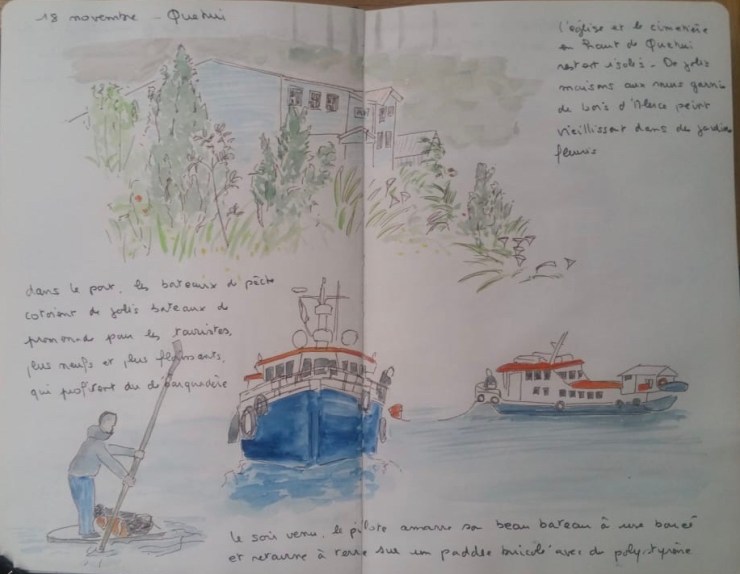 18 novembre - Quehui
l'église et le cimetière
en haut de Quehui
restent isolés - De jolis
maisons aux murs garnis
de bois d'Alerce peint
vieillissent dans des jardins
fleuris
dans le port, les bateaux de pêche
cotoient de jolis bateaux de
promenade pour les touristes,
plus neufs et plus flamboyants,
qui profitent du débarquadère
le soir venu, le pilote amarre son beau bateau à une bouée
et retourne à terre sur un paddle bricolé avec du polystyrène